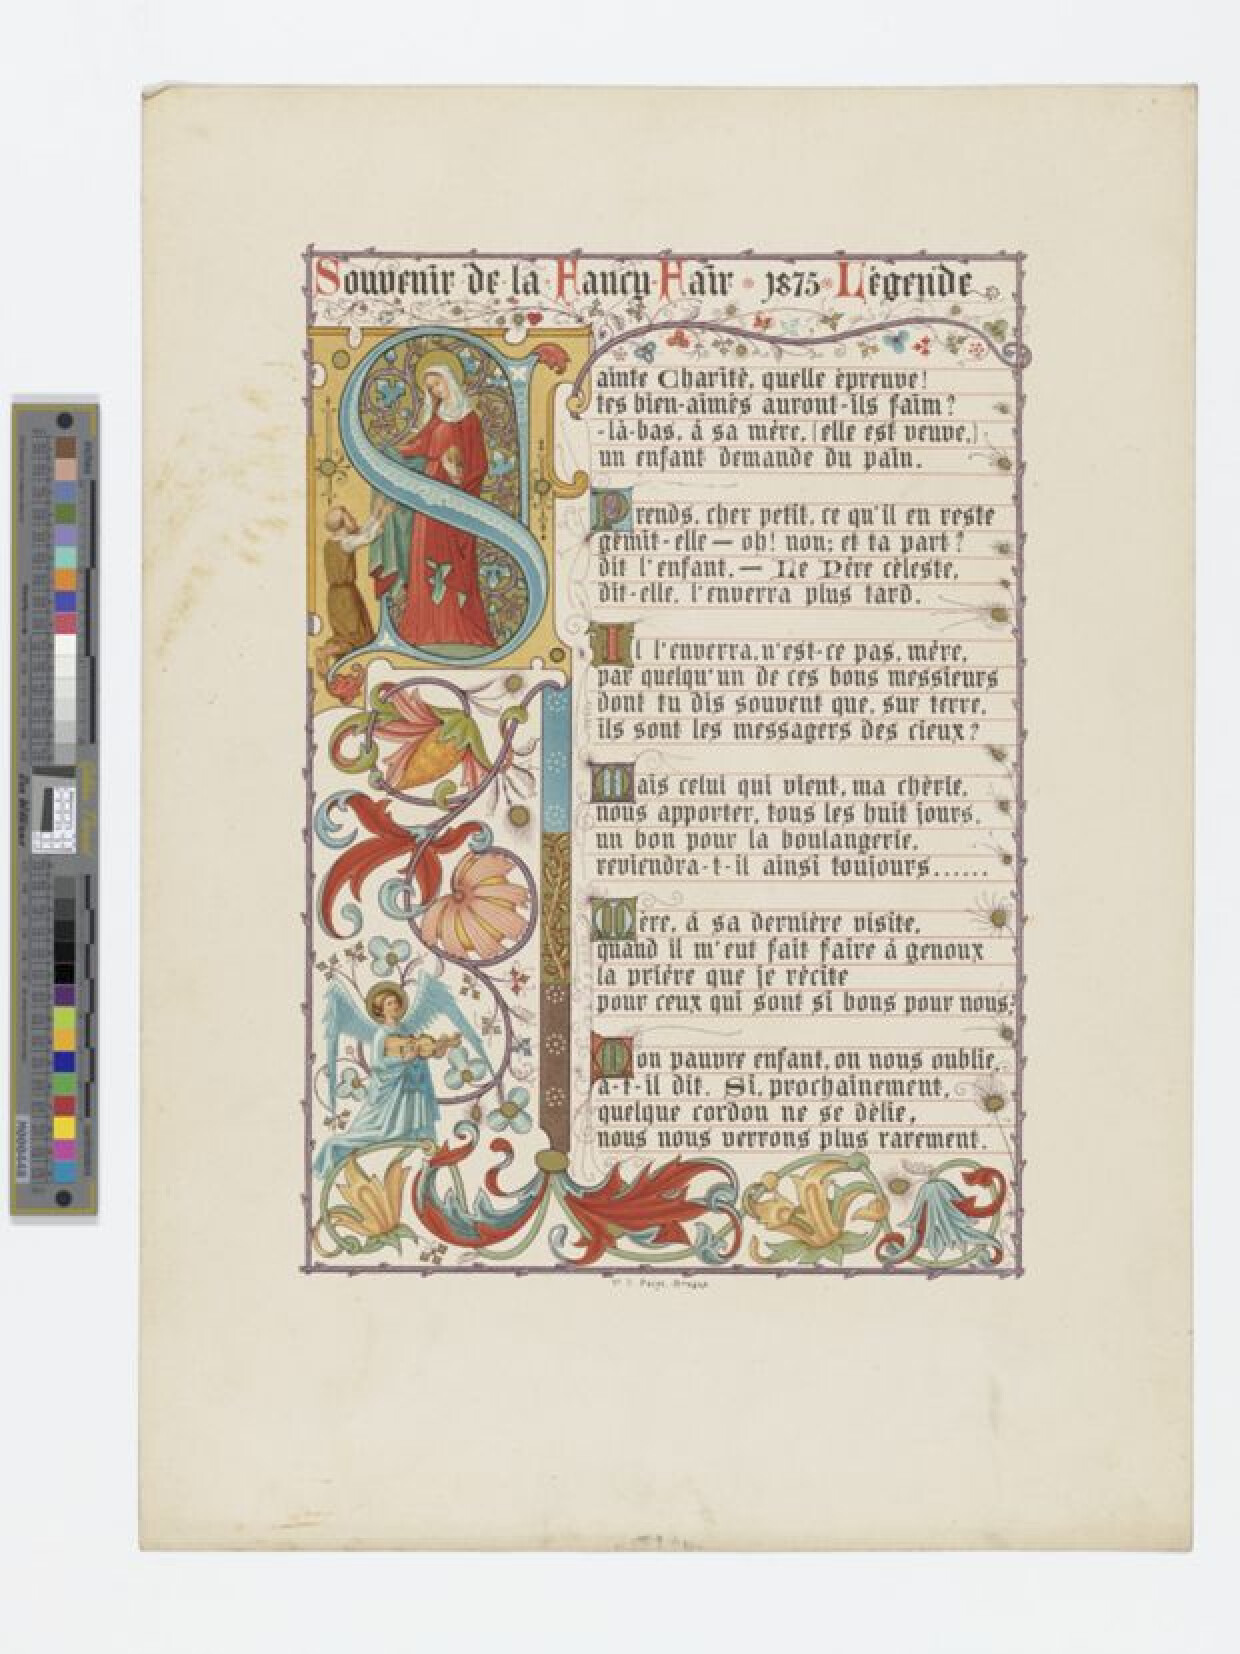 Souvenir de la Fancy-Fair * 1875 * Légende
Sainte Charité, quelle épreuve!
tes bien-aimés auront-ils faim?
-là-bas, à sa mère, (elle est veuve,)
un enfant demande du pain.
Prends, cher petit, ce qu'il en reste
gémit-elle — oh! non; et ta part?
dit l'enfant. — Le Père cèleste,
dit-elle, l'enverra plus tard.
Il l'enverra, n'est-ce pas, mère,
par quelqu'un de ces bons messieurs
dont tu dis souvent que, sur terre,
ils sont les messagers des cieux?
Mais celui qui vient, ma chèrie,
nous apporter, tous les huit jours,
un bon pour la boulangerie,
reviendra-t-il ainsi toujours......
Mère, à sa dernière visite,
quand il m'eut fait faire à genoux
la prière que je récite
pour ceux qui sont si bons pour nous:
Mon pauvre enfant, on nous oublie,
a-t-il dit. Si, prochainement,
quelque cordon ne se dèlie,
nous nous verrons plus rarement.